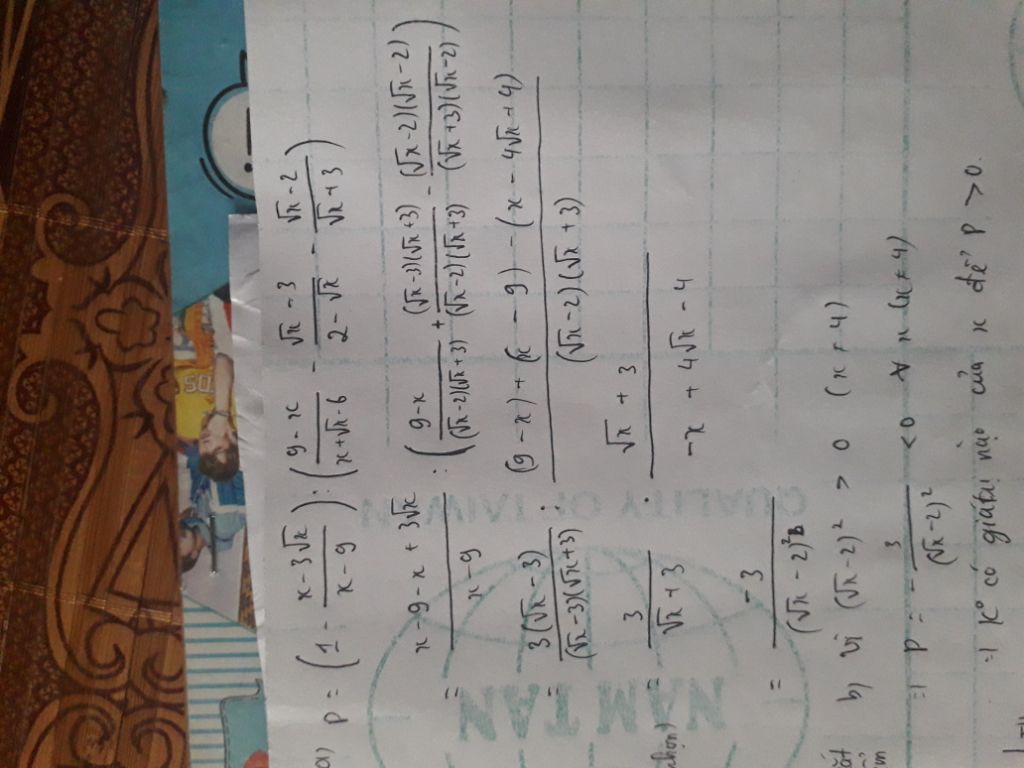 a) P = (1 - \frac{x-3\sqrt{x}}{x-9}) : (\frac{9-x}{x+\sqrt{x}-6} - \frac{\sqrt{x}-3}{2-\sqrt{x}} - \frac{\sqrt{x}-2}{\sqrt{x}+3})
= \frac{x-9-x+3\sqrt{x}}{x-9} : (\frac{9-x}{(\sqrt{x}-2)(\sqrt{x}+3)} + \frac{(\sqrt{x}-3)(\sqrt{x}+3)}{(\sqrt{x}-2)(\sqrt{x}+3)} - \frac{(\sqrt{x}-2)(\sqrt{x}-2)}{(\sqrt{x}+3)(\sqrt{x}-2)})
= \frac{3(\sqrt{x}-3)}{(\sqrt{x}-3)(\sqrt{x}+3)} : \frac{(9-x)+(x-9)-(x-4\sqrt{x}+4)}{(\sqrt{x}-2)(\sqrt{x}+3)}
= \frac{3}{\sqrt{x}+3} . \frac{\sqrt{x}+3}{-x+4\sqrt{x}-4}
= \frac{-3}{(\sqrt{x}-2)^2}
b) vì (\sqrt{x}-2)^2 > 0 (x ≠ 4)
=> P = -\frac{3}{(\sqrt{x}-2)^2} < 0 ∀ x (x ≠ 4)
=> K° có giá trị nào của x để P > 0.
NAM TAN
QUALITY OF TAIWAN